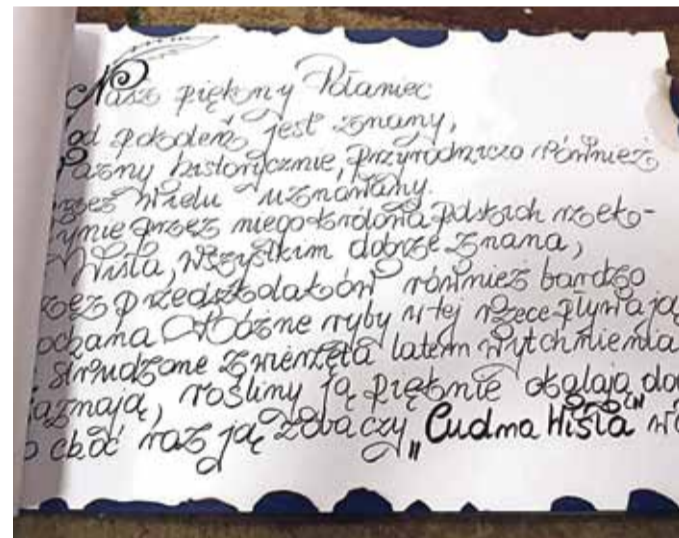 Nasz piękny Połaniec
od pokoleń jest znany,
ważny historycznie, przyrodniczo również
przez wielu uznawany.
płynie przez niego królowa polskich rzek o-
Wisła, wszystkim dobrze znana,
przez przedszkolaków również bardzo
kochana Różne ryby w tej rzece pływają
strudzone zwierzęta latem wytchnienia
zaznają, rośliny ją pięknie okalają
choć raz ją zobaczy „Cudna Wisła"